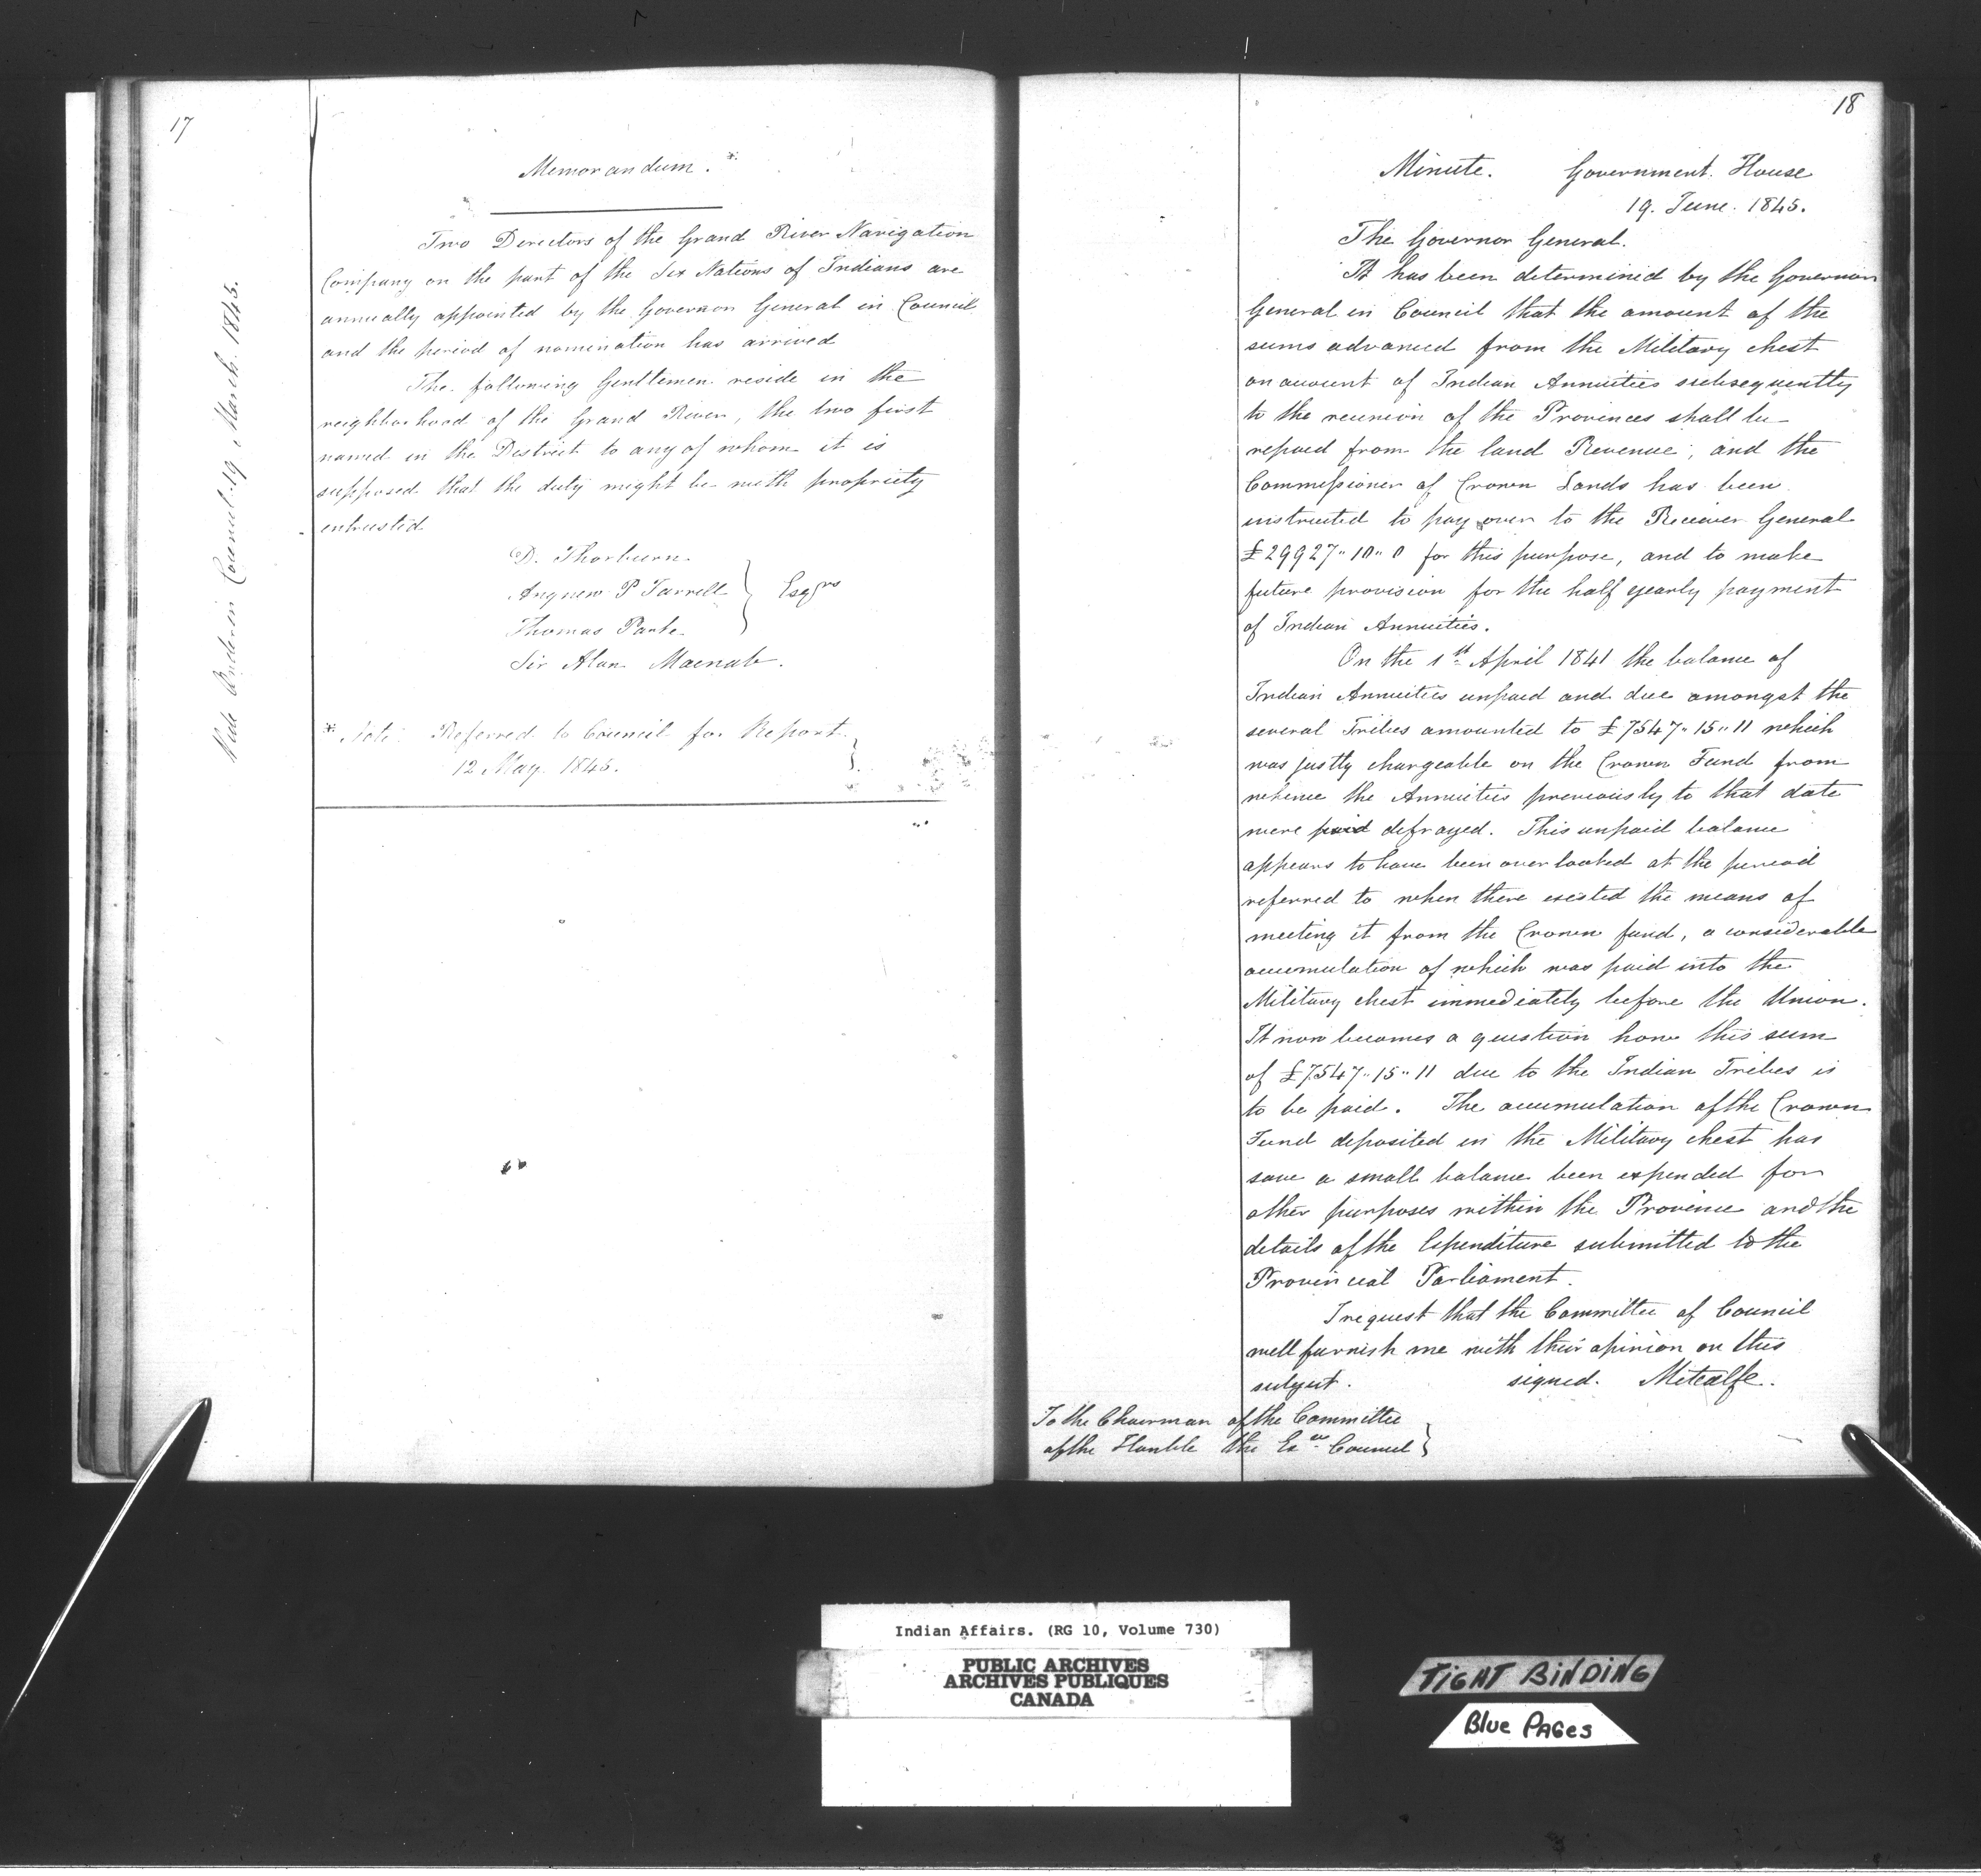 17
Vide Order in Council 19 March 1845.
Memorandum. *
Two Directors of the Grand River Navigation
Company on the part of the Six Nations of Indians are
annually appointed by the Governor General in Council
and the period of nomination has arrived
The following Gentlemen reside in the
neighborhood of the Grand River, the two first
named in the District to any of whom it is
supposed that the duty might be with propriety
entrusted
D. Thorburn
P Farrell } Esqrs
Thomas
Sir Alan Macnab.
* Note: Referred to Council for Report
12 May 1845. }
18
Minute. Government House
19. June. 1845.
The Governor General.
It has been determined by the Governor
General in Council that the amount of the
sums advanced from the Military chest
on account of Indian Annuities subsequently
to the reunion of the Provinces shall be
repaid from the land Revenue; and the
Commissioner of Crown Lands has been
instructed to pay over to the Receiver General
£29927"10"0 for this purpose, and to make
future provision for the half yearly payment
of Indian Annuities.
On the 1st April 1841 the balance of
Indian Annuities unpaid and due amongst the
several Tribes amounted to £7547"15"11 which
was justly chargeable on the Crown Fund from
whence the Annuities previously to that date
were paid defrayed. This unpaid balance
appears to have been overlooked at the period
referred to when there existed the means of
meeting it from the Crown fund, a considerable
accumulation of which was paid into the
Military chest immediately before the Union.
It now becomes a question how this sum
of £7547"15"11 due to the Indian Tribes is
to be paid. The accumulation of the Crown
Fund deposited in the Military chest has
save a small balance been expended for
other purposes within the Province and the
details of the Expenditure submitted to the
Provincial Parliament.
I request that the Committee of Council
will furnish me with their opinion on this
subject. signed. Metcalfe.
To the Chairman of the Committee
of the Honble the Exve Council }
Indian Affairs. (RG 10, Volume 730)
PUBLIC ARCHIVES
ARCHIVES PUBLIQUES
CANADA
TIGHT BINDING
Blue PAGes